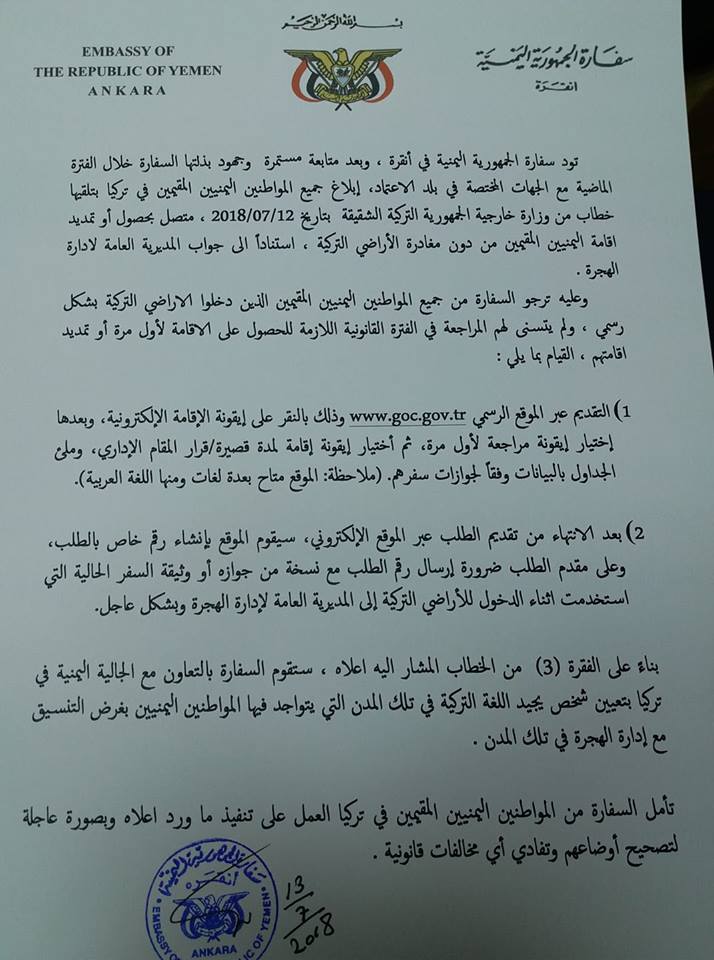 بسم الله الرحمن الرحيم
EMBASSY OF
THE REPUBLIC OF YEMEN
ANKARA
سفارة الجمهورية اليمنية
انقرة
تود سفارة الجمهورية اليمنية في أنقرة ، وبعد متابعة مستمرة وجهود بذلتها السفارة خلال الفترة
الماضية مع الجهات المختصة في بلد الاعتماد، إبلاغ جميع المواطنين اليمنيين المقيمين في تركيا بتلقيها
خطاب من وزارة خارجية الجمهورية التركية الشقيقة بتاريخ 2018/07/12 ، متصل بحصول أو تمديد
اقامة اليمنيين المقيمين من دون مغادرة الأراضي التركية ، استناداً الى جواب المديرية العامة لادارة
الهجرة .
وعليه ترجو السفارة من جميع المواطنين اليمنيين المقيمين الذين دخلوا الاراضي التركية بشكل
رسمي ، ولم يتسنى لهم المراجعة في الفترة القانونية اللازمة للحصول على الاقامة لأول مرة أو تمديد
اقامتهم ، القيام بما يلي :
1) التقديم عبر الموقع الرسمي www.goc.gov.tr وذلك بالنقر على إيقونة الإقامة الإلكترونية، وبعدها
إختيار إيقونة مراجعة لأول مرة، ثم أختيار إيقونة إقامة لمدة قصيرة/قرار المقام الإداري، وملئ
الجداول بالبيانات وفقاً لجوازات سفرهم. (ملاحظة: الموقع متاح بعدة لغات ومنها اللغة العربية).
2) بعد الانتهاء من تقديم الطلب عبر الموقع الإلكتروني، سيقوم الموقع بإنشاء رقم خاص بالطلب،
وعلى مقدم الطلب ضرورة إرسال رقم الطلب مع نسخة من جوازه أو وثيقة السفر الحالية التي
استخدمت اثناء الدخول للأراضي التركية إلى المديرية العامة لإدارة الهجرة وبشكل عاجل.
بناءً على الفقرة (3) من الخطاب المشار اليه اعلاه ، ستقوم السفارة بالتعاون مع الجالية اليمنية في
تركيا بتعيين شخص يجيد اللغة التركية في تلك المدن التي يتواجد فيها المواطنين اليمنيين بغرض التنسيق
مع إدارة الهجرة في تلك المدن .
تأمل السفارة من المواطنين اليمنيين المقيمين في تركيا العمل على تنفيذ ما ورد اعلاه وبصورة عاجلة
لتصحيح أوضاعهم وتفادي أي مخالفات قانونية .
سفارة الجمهورية اليمنية
أنقره
EMBASSY OF REPUBLIC OF YEMEN
ANKARA
13
7
2018